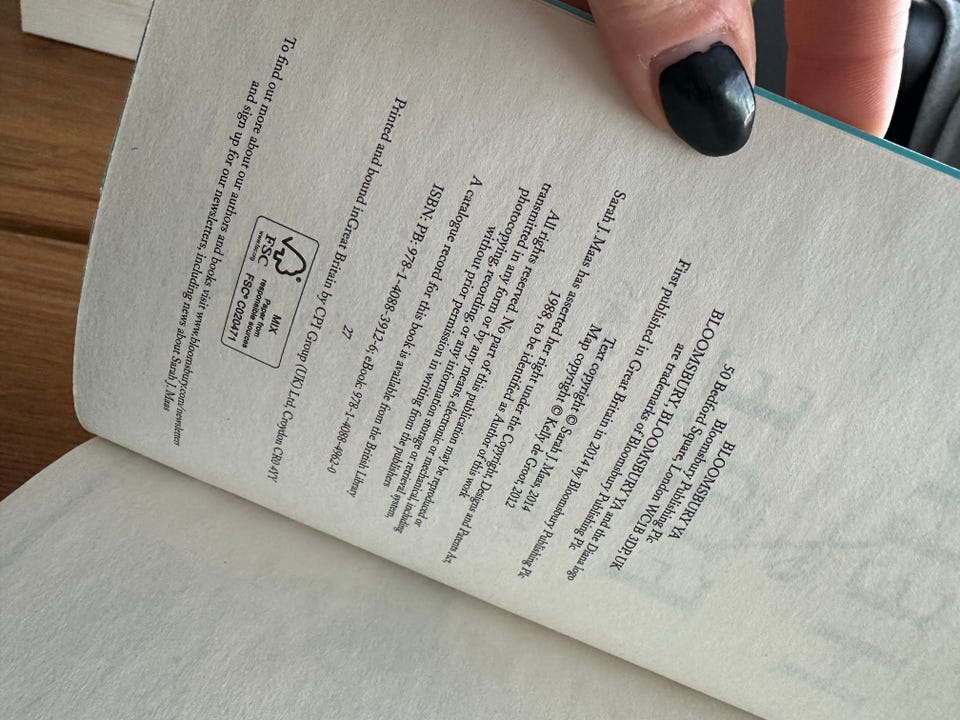 BLOOMSBURY YA
Bloomsbury Publishing Plc
50 Bedford Square, London WC1B 3DP, UK
BLOOMSBURY, BLOOMSBURY YA and the Diana logo
are trademarks of Bloomsbury Publishing Plc
First published in Great Britain in 2014 by Bloomsbury Publishing Plc
Text copyright © Sarah J. Maas, 2014
Map copyright © Kelly de Groot, 2012
Sarah J. Maas has asserted her right under the Copyright, Designs and Patents Act,
1988, to be identified as Author of this work
All rights reserved. No part of this publication may be reproduced or
transmitted in any form or by any means, electronic or mechanical, including
photocopying, recording, or any information storage or retrieval system,
without prior permission in writing from the publishers
A catalogue record for this book is available from the British Library
ISBN: PB: 978-1-4088-3912-6; eBook: 978-1-4088-4962-0
27
Printed and bound in Great Britain by CPI Group (UK) Ltd, Croydon CR0 4YY
FSC
www.fsc.org
MIX
Paper from
responsible sources
FSC® C020471
To find out more about our authors and books visit www.bloomsbury.com/newsletters
and sign up for our newsletters, including news about Sarah J. Maas